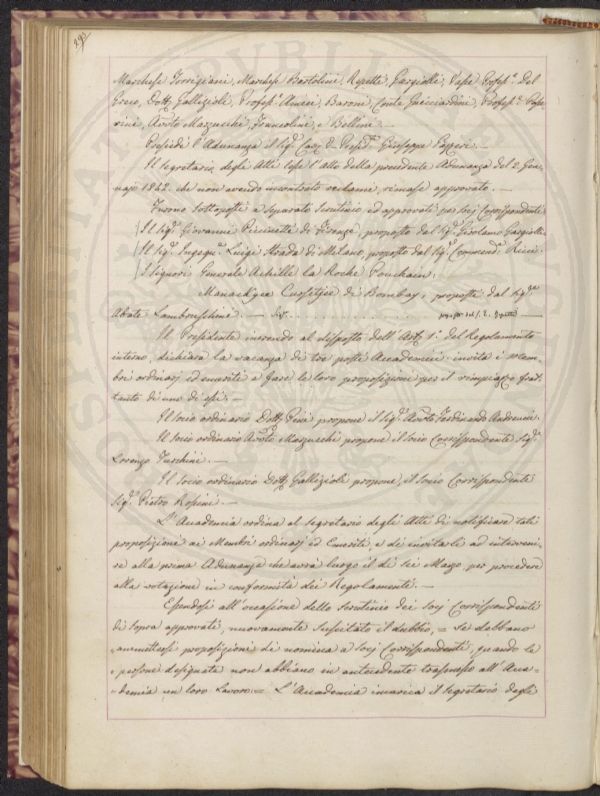 290
Marchese Torrigiani, Marchese Bartolini, Repetti, Gargiolli, Vasse Profess.e Del
Greco, Dott. Gallizioli, Profess.e Amici, Baroni, Conte Guicciardini, Profess.e Passe
rini, Avvto Mazzucchi, Franceolini, e Bellini.—
Presiede l'Adunanza il Sig.e Cav.e V. Presid.e Giuseppe Pazzeri.—
Il Segretario degli Atti lesse l'Atto della precedente Adunanza del 2 Gen-
najo 1842. che non avendo incontrato reclame, rimase approvato.—
Furono sottoposti a separato Scrutinio ed approvati per Socj Corrispondenti
Il Sig.e Giovanni Piccinetti di Firenze, proposto dal Sig.e Girolamo Gargiolli
Il Sig.e Ingegn.e Luigi Strada di Milano, proposto dal Sig.e Commend.e Ricci.
I Signori Generale Achille la Roche Pouchain;
Manackjee Cursetjee di Bombay, proposti dal Sig.e
Abate Lambruschini.—
Il Presidente inerendo al disposto dell'Art. 1.o del Regolamento
interno, dichiara la vacanza di tre posti Accademici invita i Mem-
bri ordinarj ed emeriti a fare le loro proposizioni per il rimpiazzo frat-
tanto di uno di essi.—
Il Socio ordinario Dott. Gini propone il Sig.e Avvto Ferdinando Andreucci.
Il Socio ordinario Avvto Mazzucchi propone il Socio Corrispondente Sig.e
Lorenzo Turchini.—
Il Socio ordinario Dott. Gallizioli propone, il Socio Corrispondente
Sig.e Pietro Rossini.—
L'Accademia ordina al Segretario degli Atti di notificare tali
proposizioni ai Membri ordinarj ed Emeriti e di invitarli ad interveni-
re alla prima Adunanza che avrà luogo il dì sei Marzo per procedere
alla votazione in conformità dei Regolamenti.—
Essendosi all'occasione dello Scrutinio dei Socj Corrispondenti
di sopra approvati, nuovamente suscitato il dubbio, = Se debbano
ammettersi proposizioni di nomina a Socj Corrispondenti, quando le
persone designate non abbiano in antecedente trasmesso all'Acca-
demia un loro lavoro = L'Accademia incarica il Segretario degli